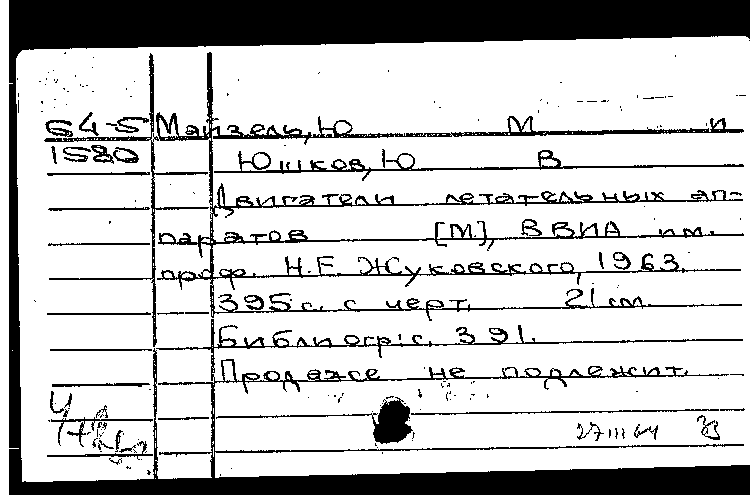 64-5 Майзель, Ю М и
1580 Юшков, Ю В
Двигатели летательных ап-
паратов [М], ВВИА им.
проф. Н.Е. Жуковского, 1963.
395 с. с черт. 21 см.
Библиогр: с. 391.
Продаже не подлежит.
27 III 64